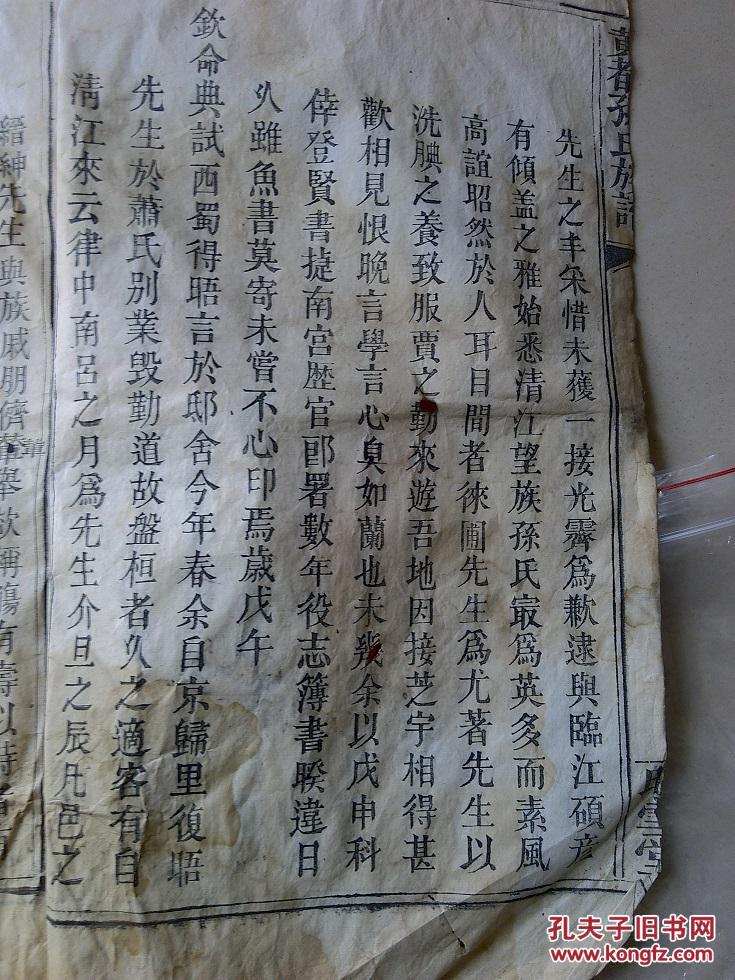 黄者孫氏族譜
先生之丰采惜未獲一接光霽爲歉逮與臨江碩彦
有傾盖之雅始悉清江望族孫氏冣爲英多而素風
高誼昭然於人耳目間者徠圃先生爲尤著先生以
洗腆之養致服賈之勤來遊吾地因接芝宇相得甚
歡相見恨晚言學言心臭如蘭也未幾余以戊申科
倖登賢書捷南宮歴官郎署數年役志簿書睽違日
乆雖魚書莫寄未嘗不心印焉歲戊午
欽命典試西蜀得晤言於邸舍今年春余自京歸里復晤
先生於蕭氏別業毀勤道故盤桓者乆之適客有自
清江來云律中南呂之月爲先生介旦之辰凡邑之
縉紳先生與族戚朋儕舉欲稱觴有壽以詩者有
孔夫子旧书网
www.kongfz.com